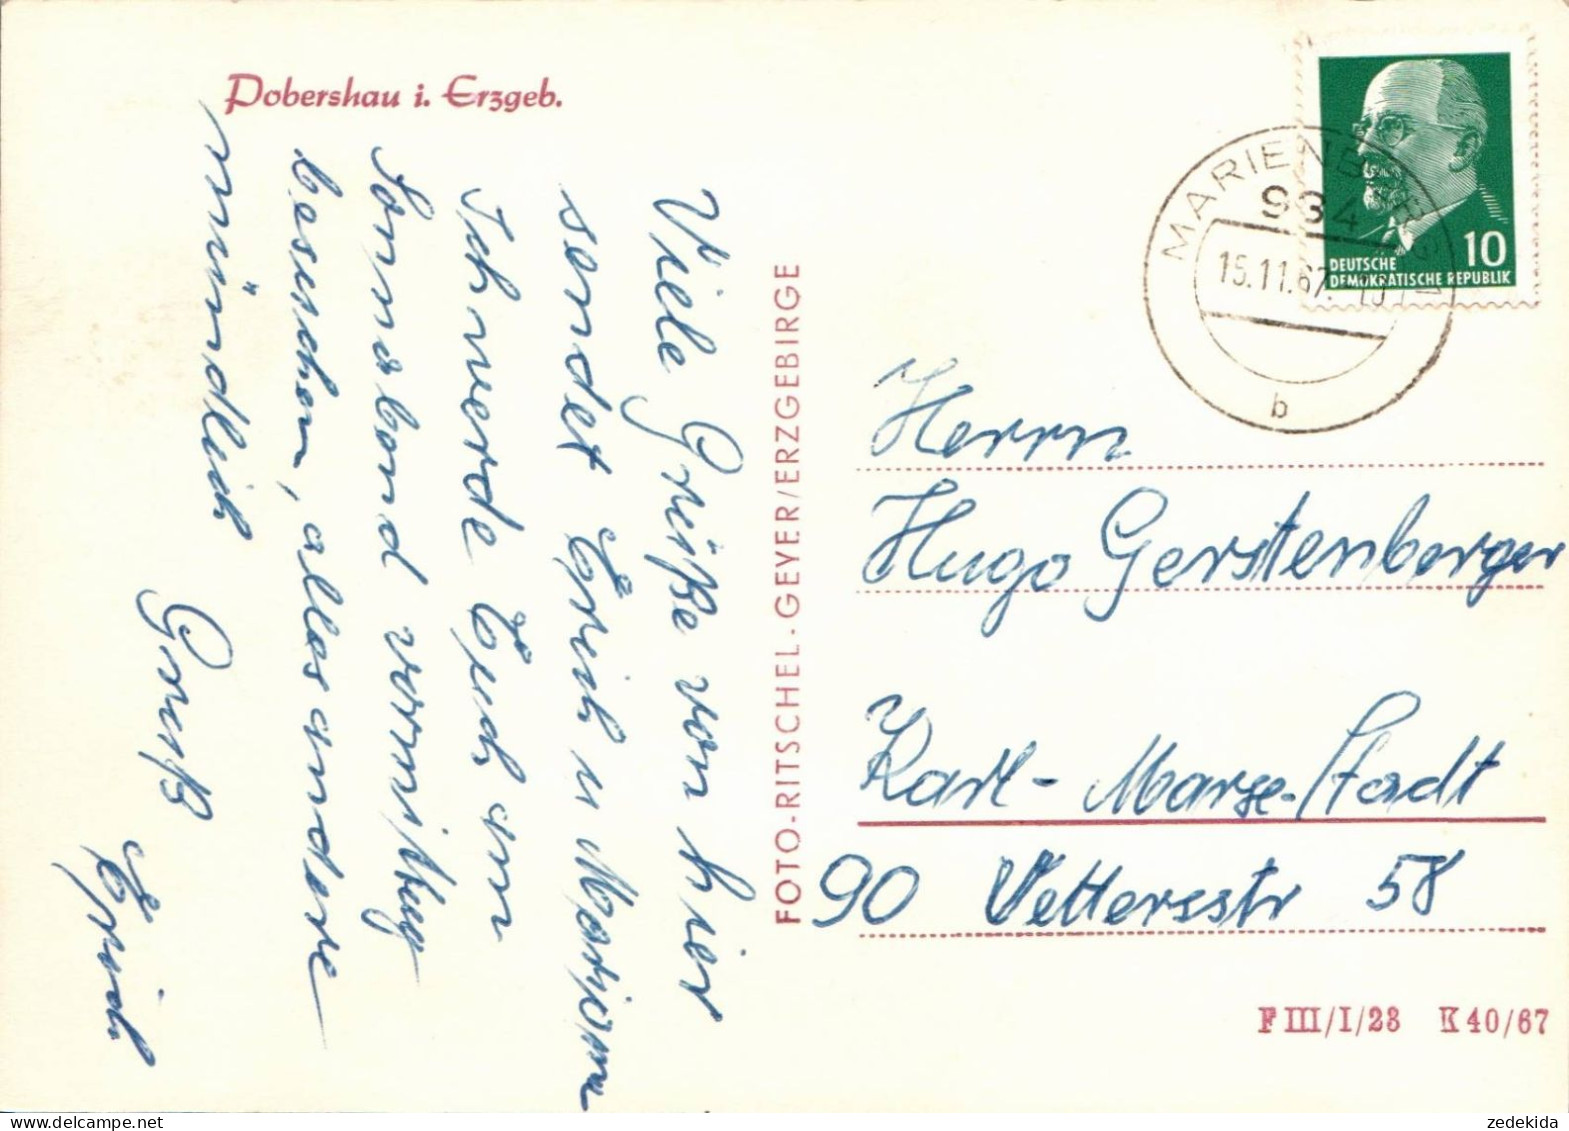 Pobershau i. Erzgeb.
Viele Grüße von hier
sendet Erich u Marjom
Ich werde Euch am
Sonnabend vormittag
besuchen, alles andere
mündlich
Gruß
Erich
FOTO-RITSCHEL-GEYER/ERZGEBIRGE
MARIENBERG
934
15.11.67.
b
10
DEUTSCHE
DEMOKRATISCHE REPUBLIK
Herrn
Hugo Gerstenberger
Karl-Marx-Stadt
90 Vettersstr 58
F III/I/23 K 40/67
zedekida